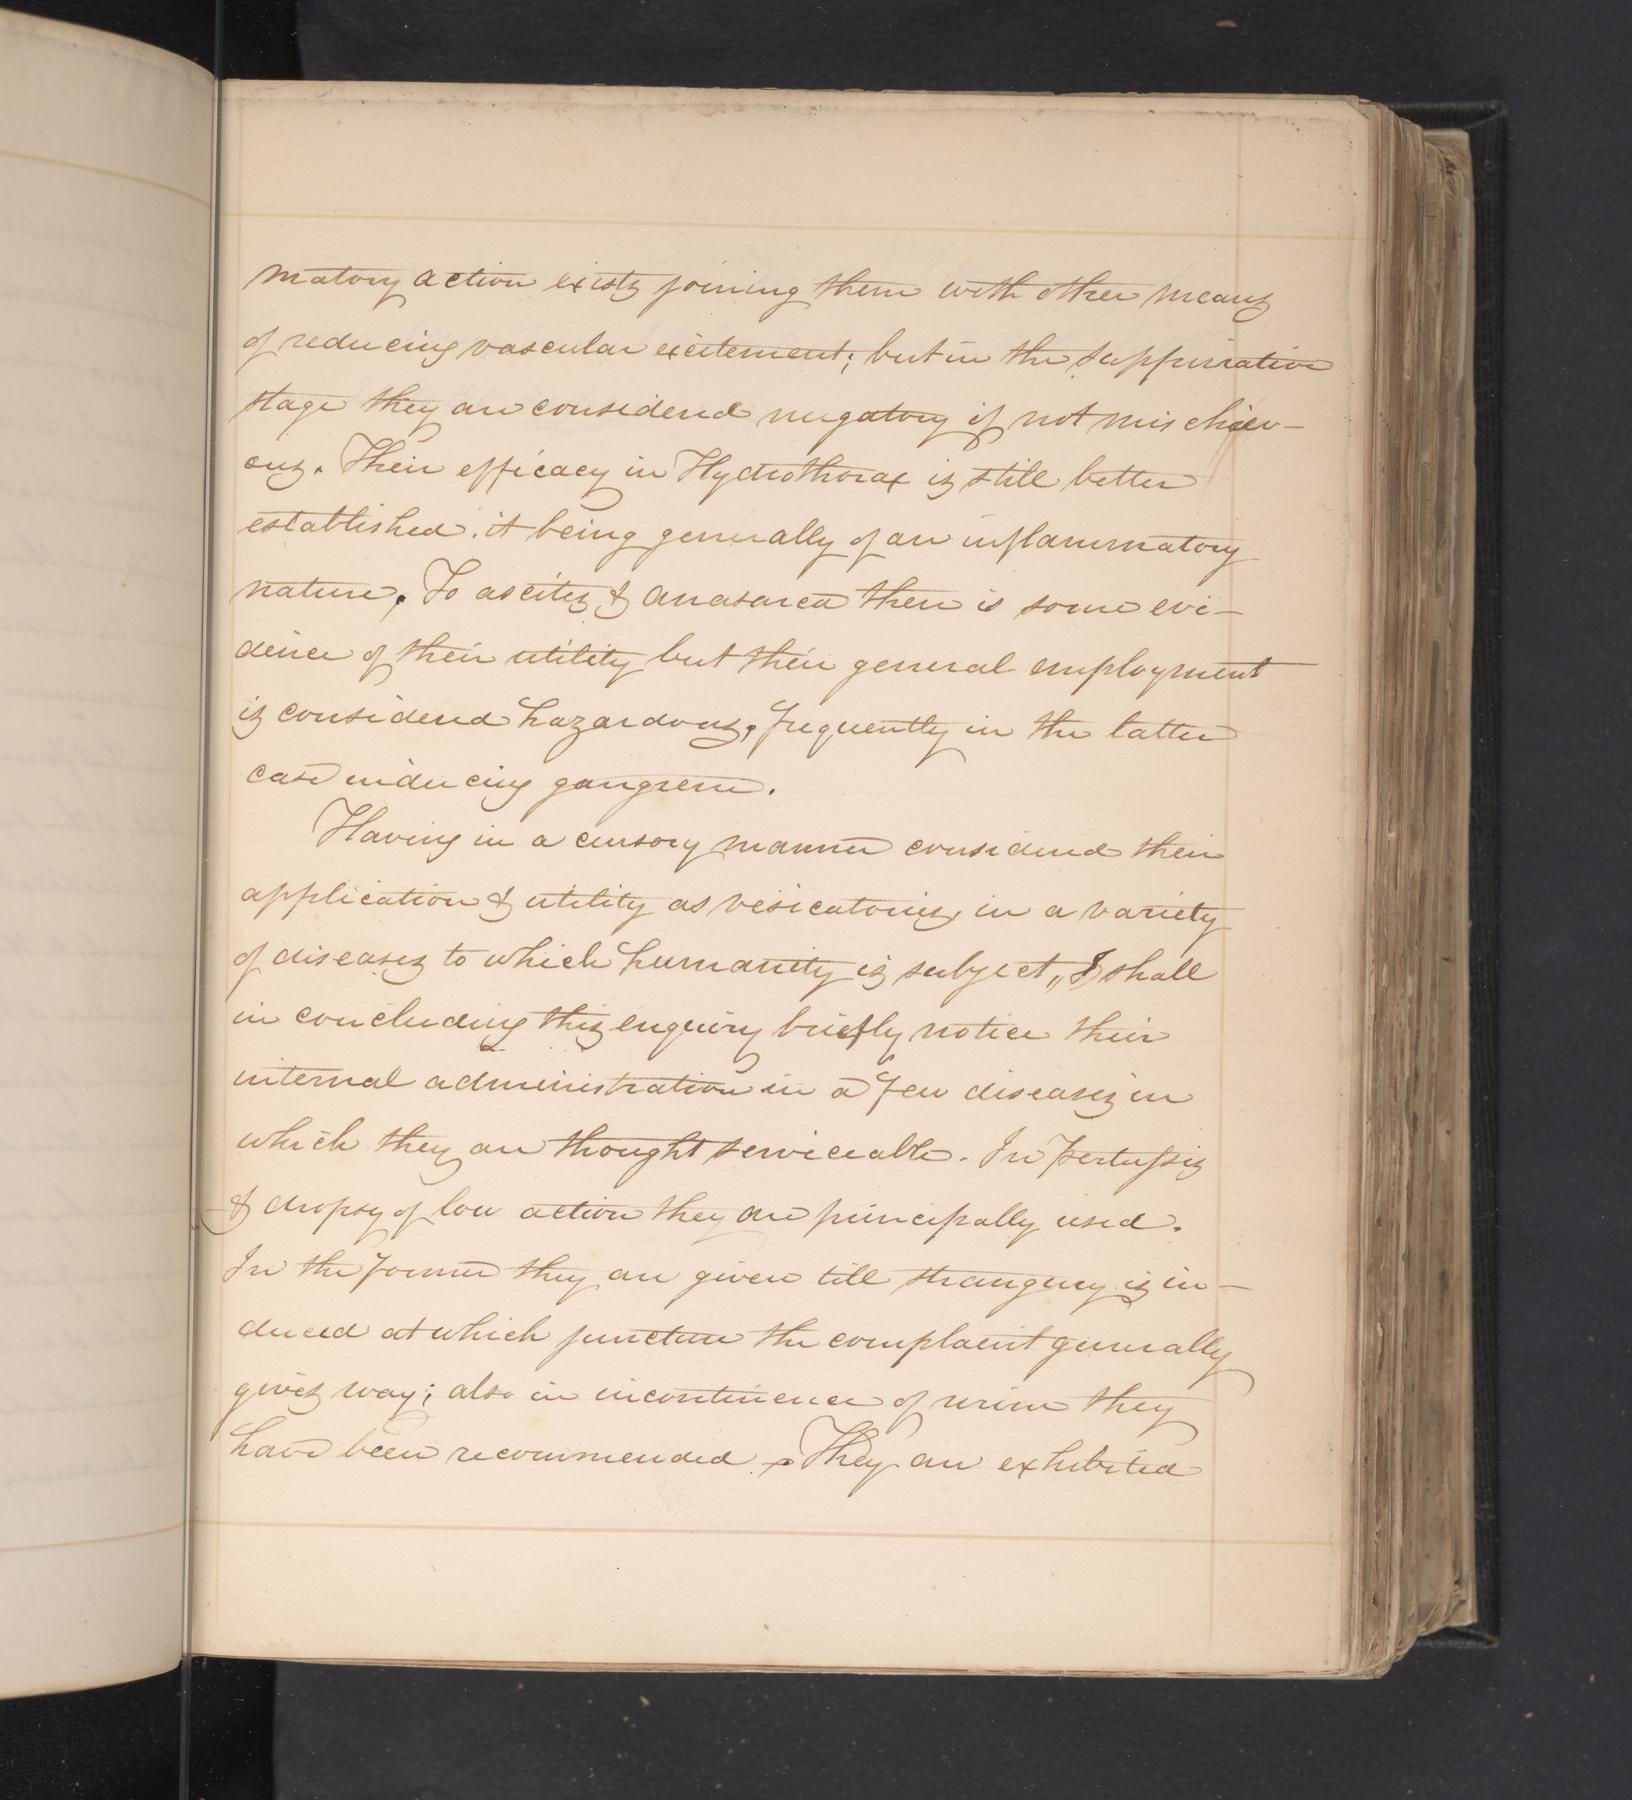 matory action exists joining them with other means
of reducing vascular excitement; but in the suppurative
stage they are considered nugatory if not mischiev-
ous. Their efficacy in Hydrothorax is still better
established. it being generally of an inflammatory
nature. To ascites & anasarca there is some evi-
dence of their utility but their general employment
is considered hazardous, frequently in the latter
case inducing gangrene.
Having in a cursory manner considered their
application & utility as vesicatories, in a variety
of diseases to which humanity is subject, I shall
in concluding this enquiry briefly notice their
internal administration in a few diseases in
which they are thought serviceable. In Pertussis
& dropsy of low action they are principally used.
In the former they are given till strangury is in-
duced at which juncture the complaint generally
gives way; also in incontinence of urine they
have been recommended. They are exhibited